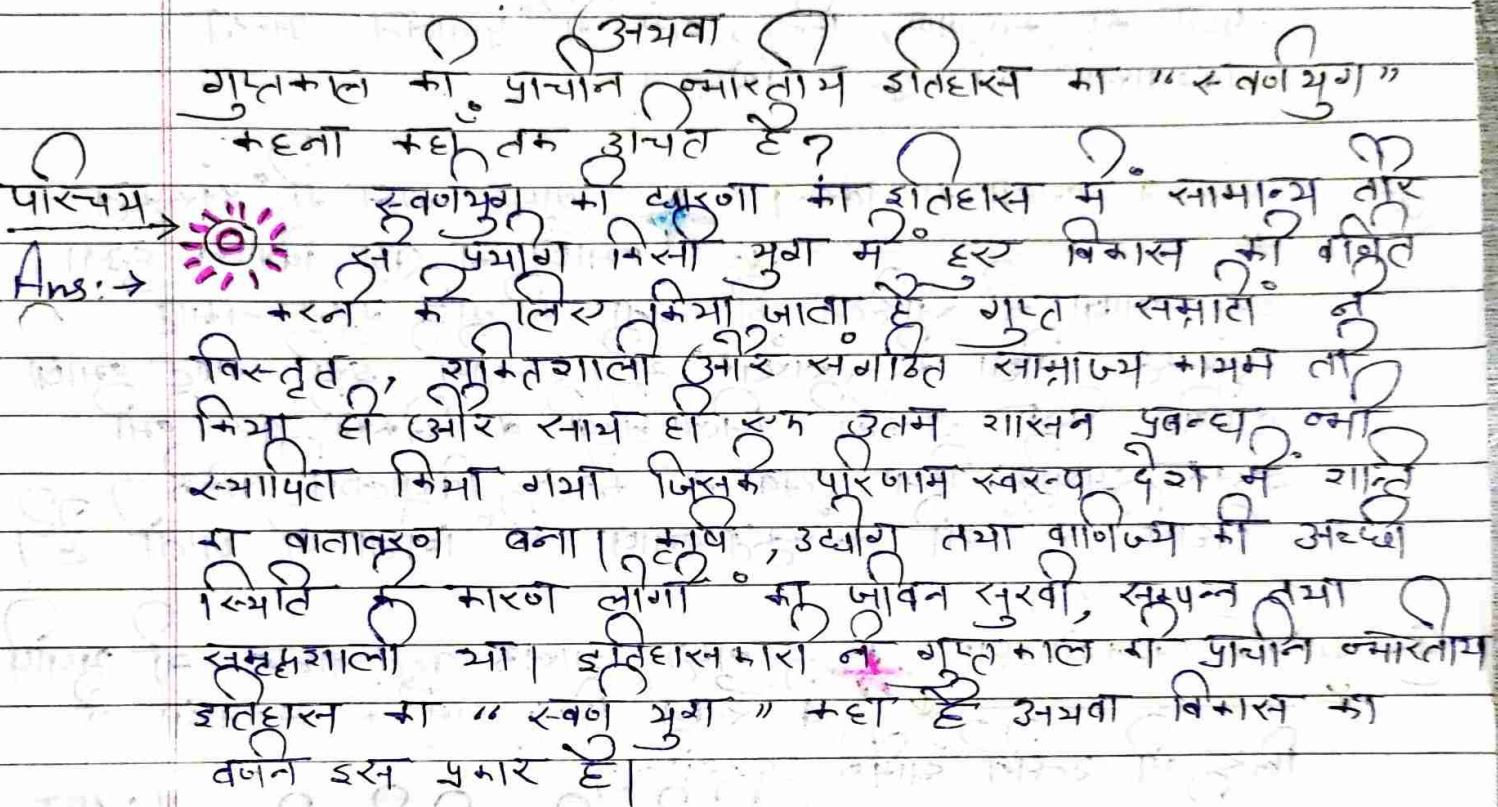 अथवा
गुप्तकाल को प्राचीन भारतीय इतिहास का "स्वर्णयुग"
कहना कहाँ तक उचित है?
परिचय → स्वर्णयुग की धारणा का इतिहास में सामान्य तौर
Ans:→ से प्रयोग किसी युग में हुए विकास को वर्णित
करने के लिए किया जाता है गुप्त सम्राटों ने
विस्तृत, शक्तिशाली और संगठित साम्राज्य कायम तो
किया ही और साथ ही एक उतम शासन प्रबन्ध भी
स्थापित किया गया जिसके परिणाम स्वरूप देश में शान्ति
का वातावरण बना। कृषि, उद्योग तथा वाणिज्य की अच्छी
स्थिति के कारण लोगों का जीवन सुखी, सम्पन्न तथा
समृद्धशाली था। इतिहासकारों ने गुप्त काल को प्राचीन भारतीय
इतिहास का "स्वर्ण युग" कहा है अथवा विकास का
वर्णन इस प्रकार है।